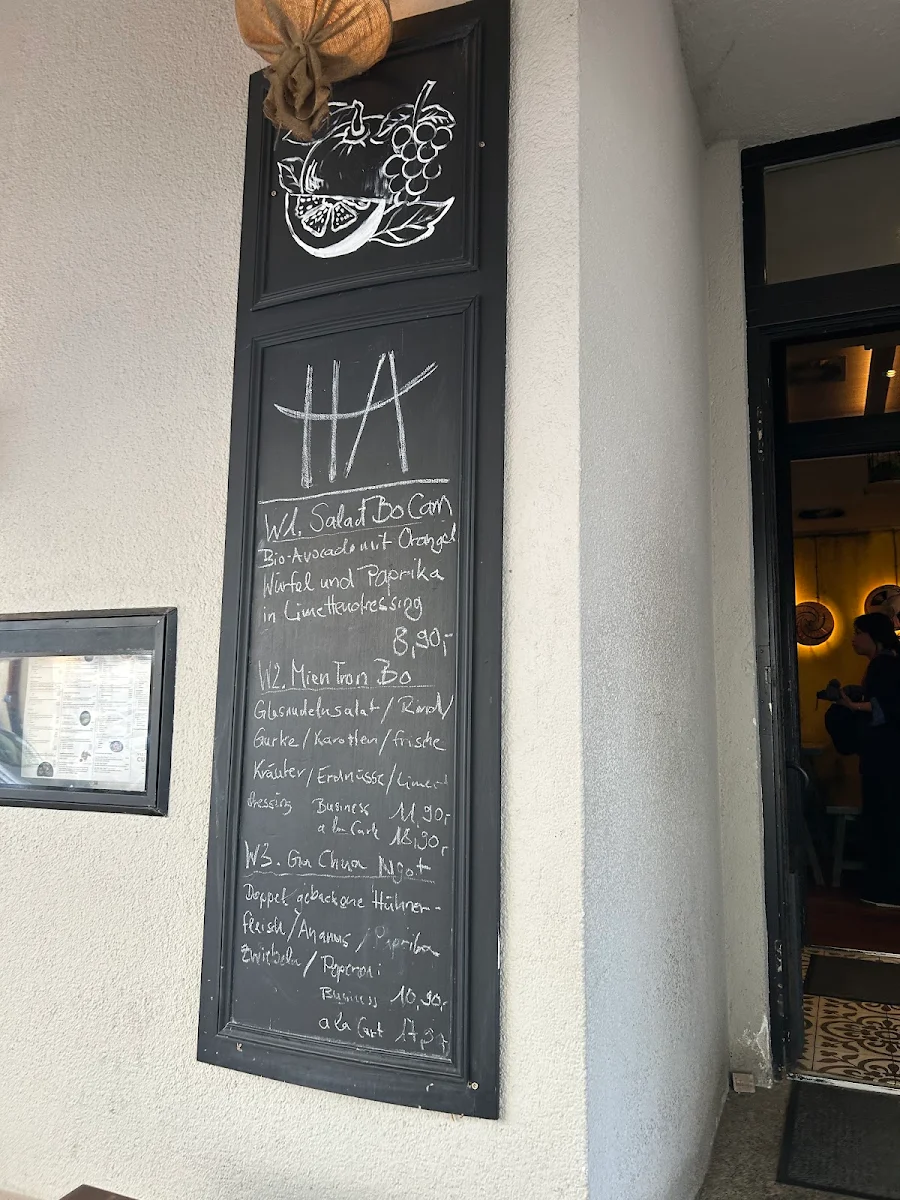 HA
W1. Salad Bo Cam
Bio-Avocado mit Orangel
Würfel und Paprika
in Limettendressing
8,90,-
W2. Mien Tron Bo
Glasnudelnsalat / Rind /
Gurke / Karotten / frische
Kräuter / Erdnüsse / Limet
dressing Business 11,90,-
a la Cart 18,90,-
W3. Ga Chua Ngot
Doppel gebackene Hühner-
fleisch / Ananas / Paprika
Zwiebeln / Peperoni
Business 10,90,-
a la Cart 17,9